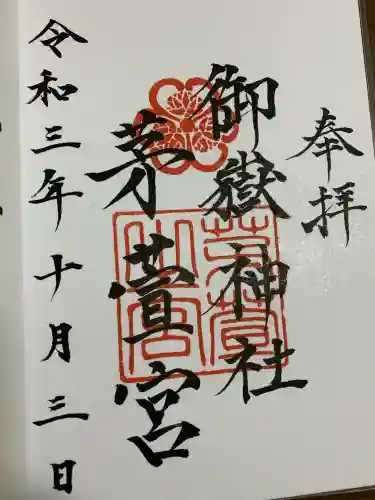 奉拝
御嶽神社
茅萱宮
令和三年十月三日